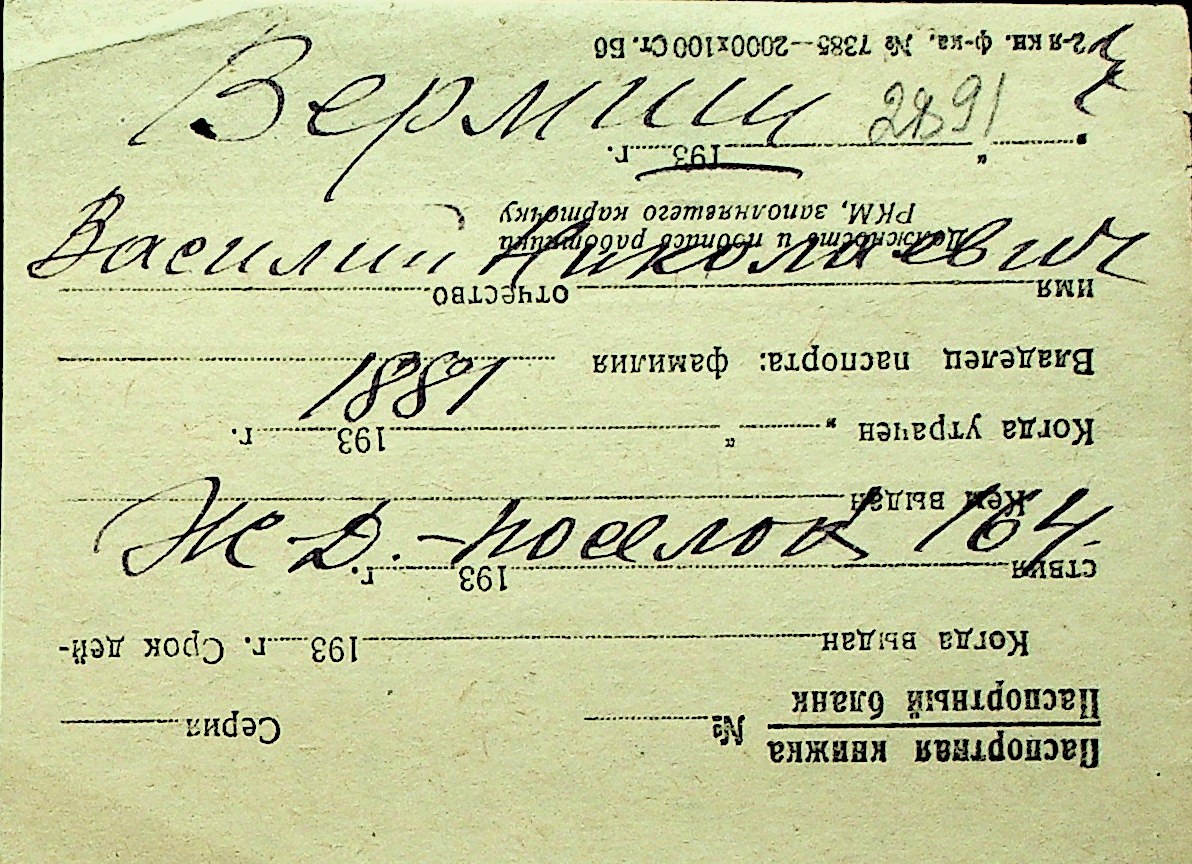 Василий Николаевич
1881
Ж-Д.-поселок 164
Паспортная книжка
Паспортный бланк
№ Серия
Когда выдан 193 г. Срок дей-
ствия 193 г.
Кем выдан
Когда утрачен „ “ 193 г.
Владелец паспорта: фамилия
имя отчество
Должность и подпись работника
РКМ, заполнявшего карточку
„ “ 193 г.
2-я кн. ф-ка. № 7385—2000х100 Ст. Бб